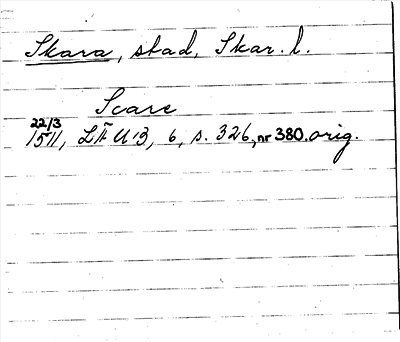 Skara, stad, Skar. l.
Scare
22/3
1511, LÄUB, 6, s. 326, nr 380. orig.